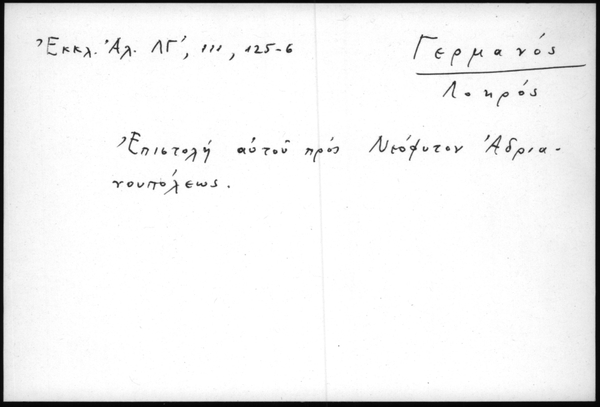 Ἐκκλ. Ἀλ. ΛΓ', III, 125-6
Γερμανός
Λοκρός
Ἐπιστολή αὐτοῦ πρός Νεόφυτον Ἀδρια-
νουπόλεως.